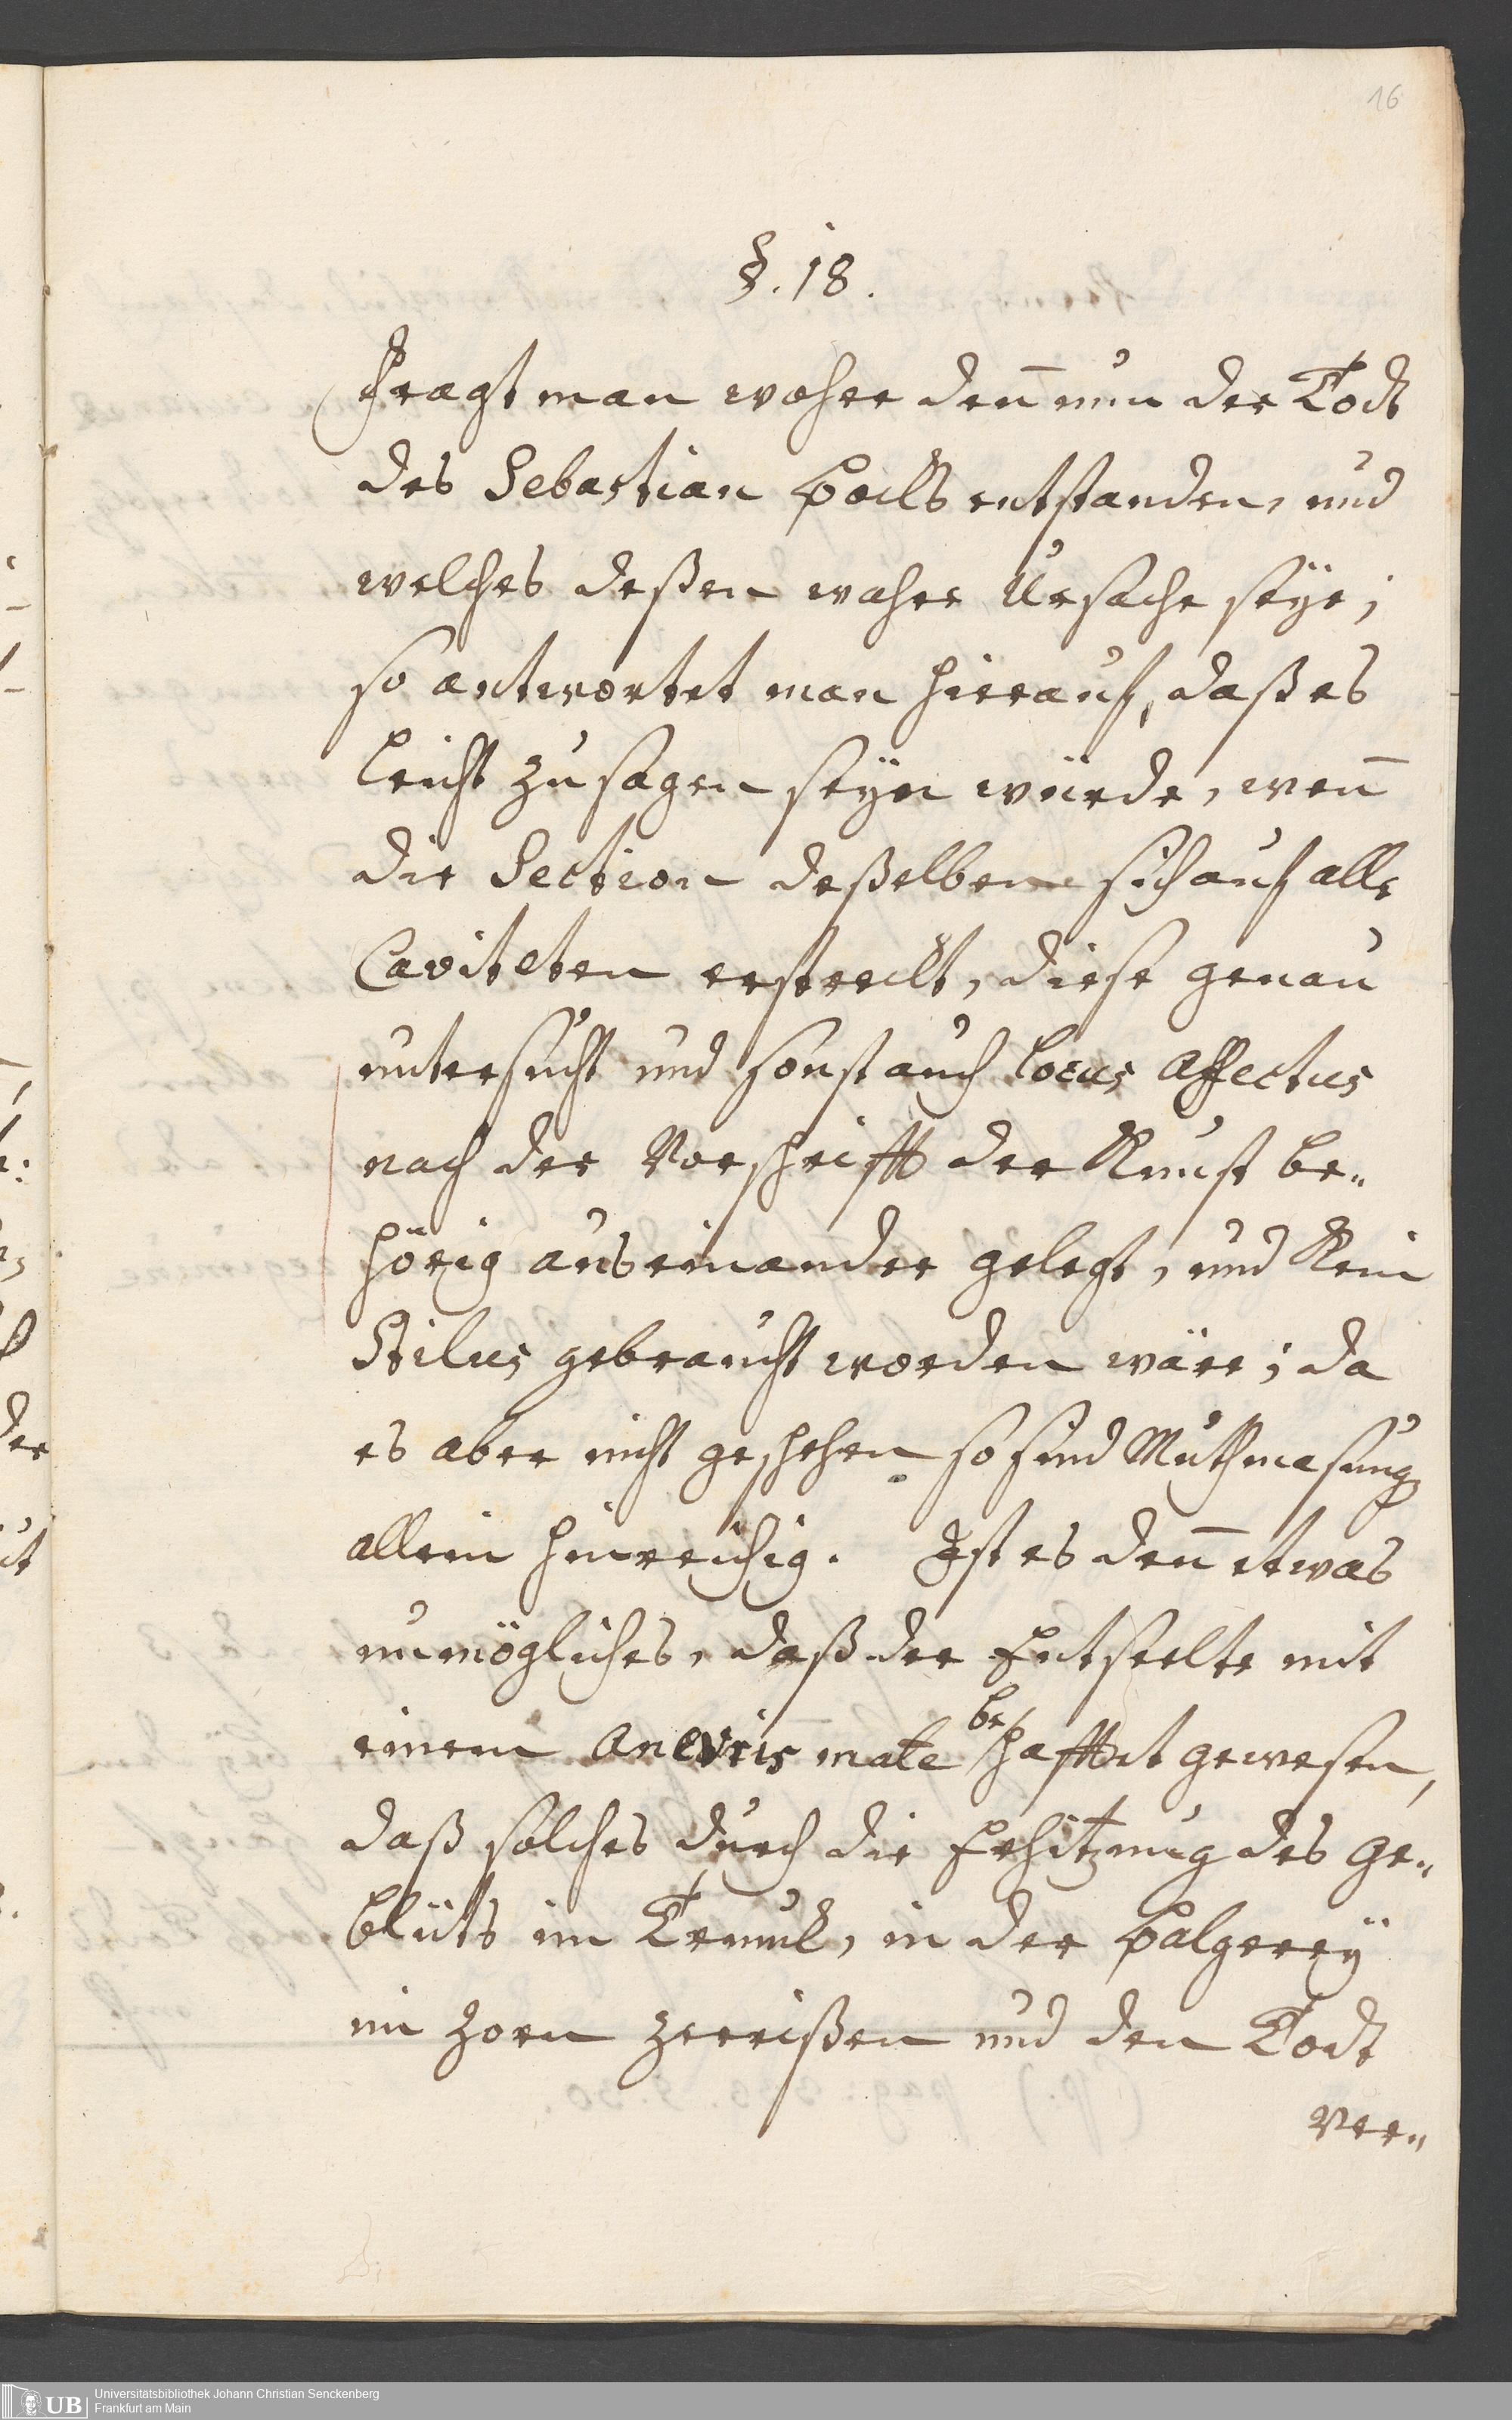 16
§. 18.
Fragt man woher den̄ nun der Todt
des Sebastian Pocks entstanden, und
welches deßen wahre Ursache seÿe;
so antwortet man hierauf, daß es
leicht zu sagen seÿn würde, wen̄
die Section deßelben sich auf alle
Caviteten erstreckt, diese genau
untersucht und sonst auch Locus Affectus
nach der Vorschrifft der Kunst be„
hörig auseinander gelegt, und kein
Stilus gebraucht worden wäre; da
es aber nicht geschehen so sind Muthmasung
allein hinreichig. Ist es den̄ etwas
unmögliches, daß der Entseelte mit
einem Anevrismate behafftet gewesen,
daß solches durch die Erhitzung des Ge„
blüts im Trunk, in der Palgereÿ
im Zorn zerrißen und den Todt
ver„
UB
Universitätsbibliothek Johann Christian Senckenberg
Frankfurt am Main